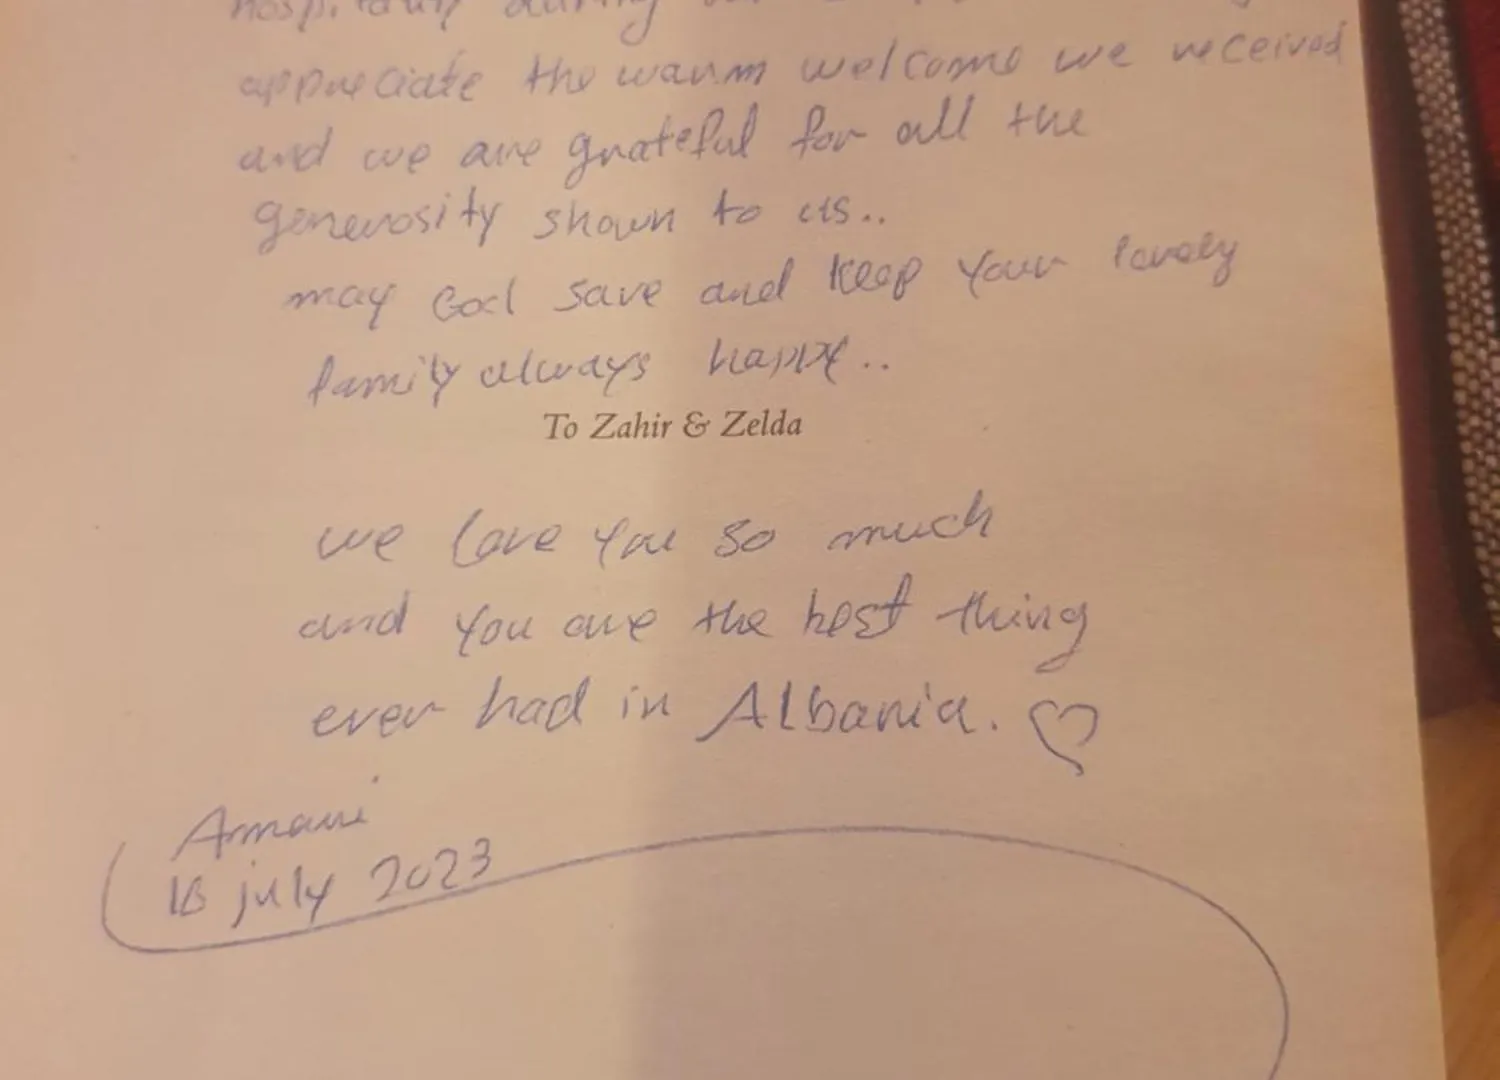 hospitality during
appreciate the warm welcome we received
and we are grateful for all the
generosity shown to us..
may God save and keep your lovely
family always happy..
To Zahir & Zelda
we love you so much
and you are the best thing
ever had in Albania.
Amani
18 july 2023